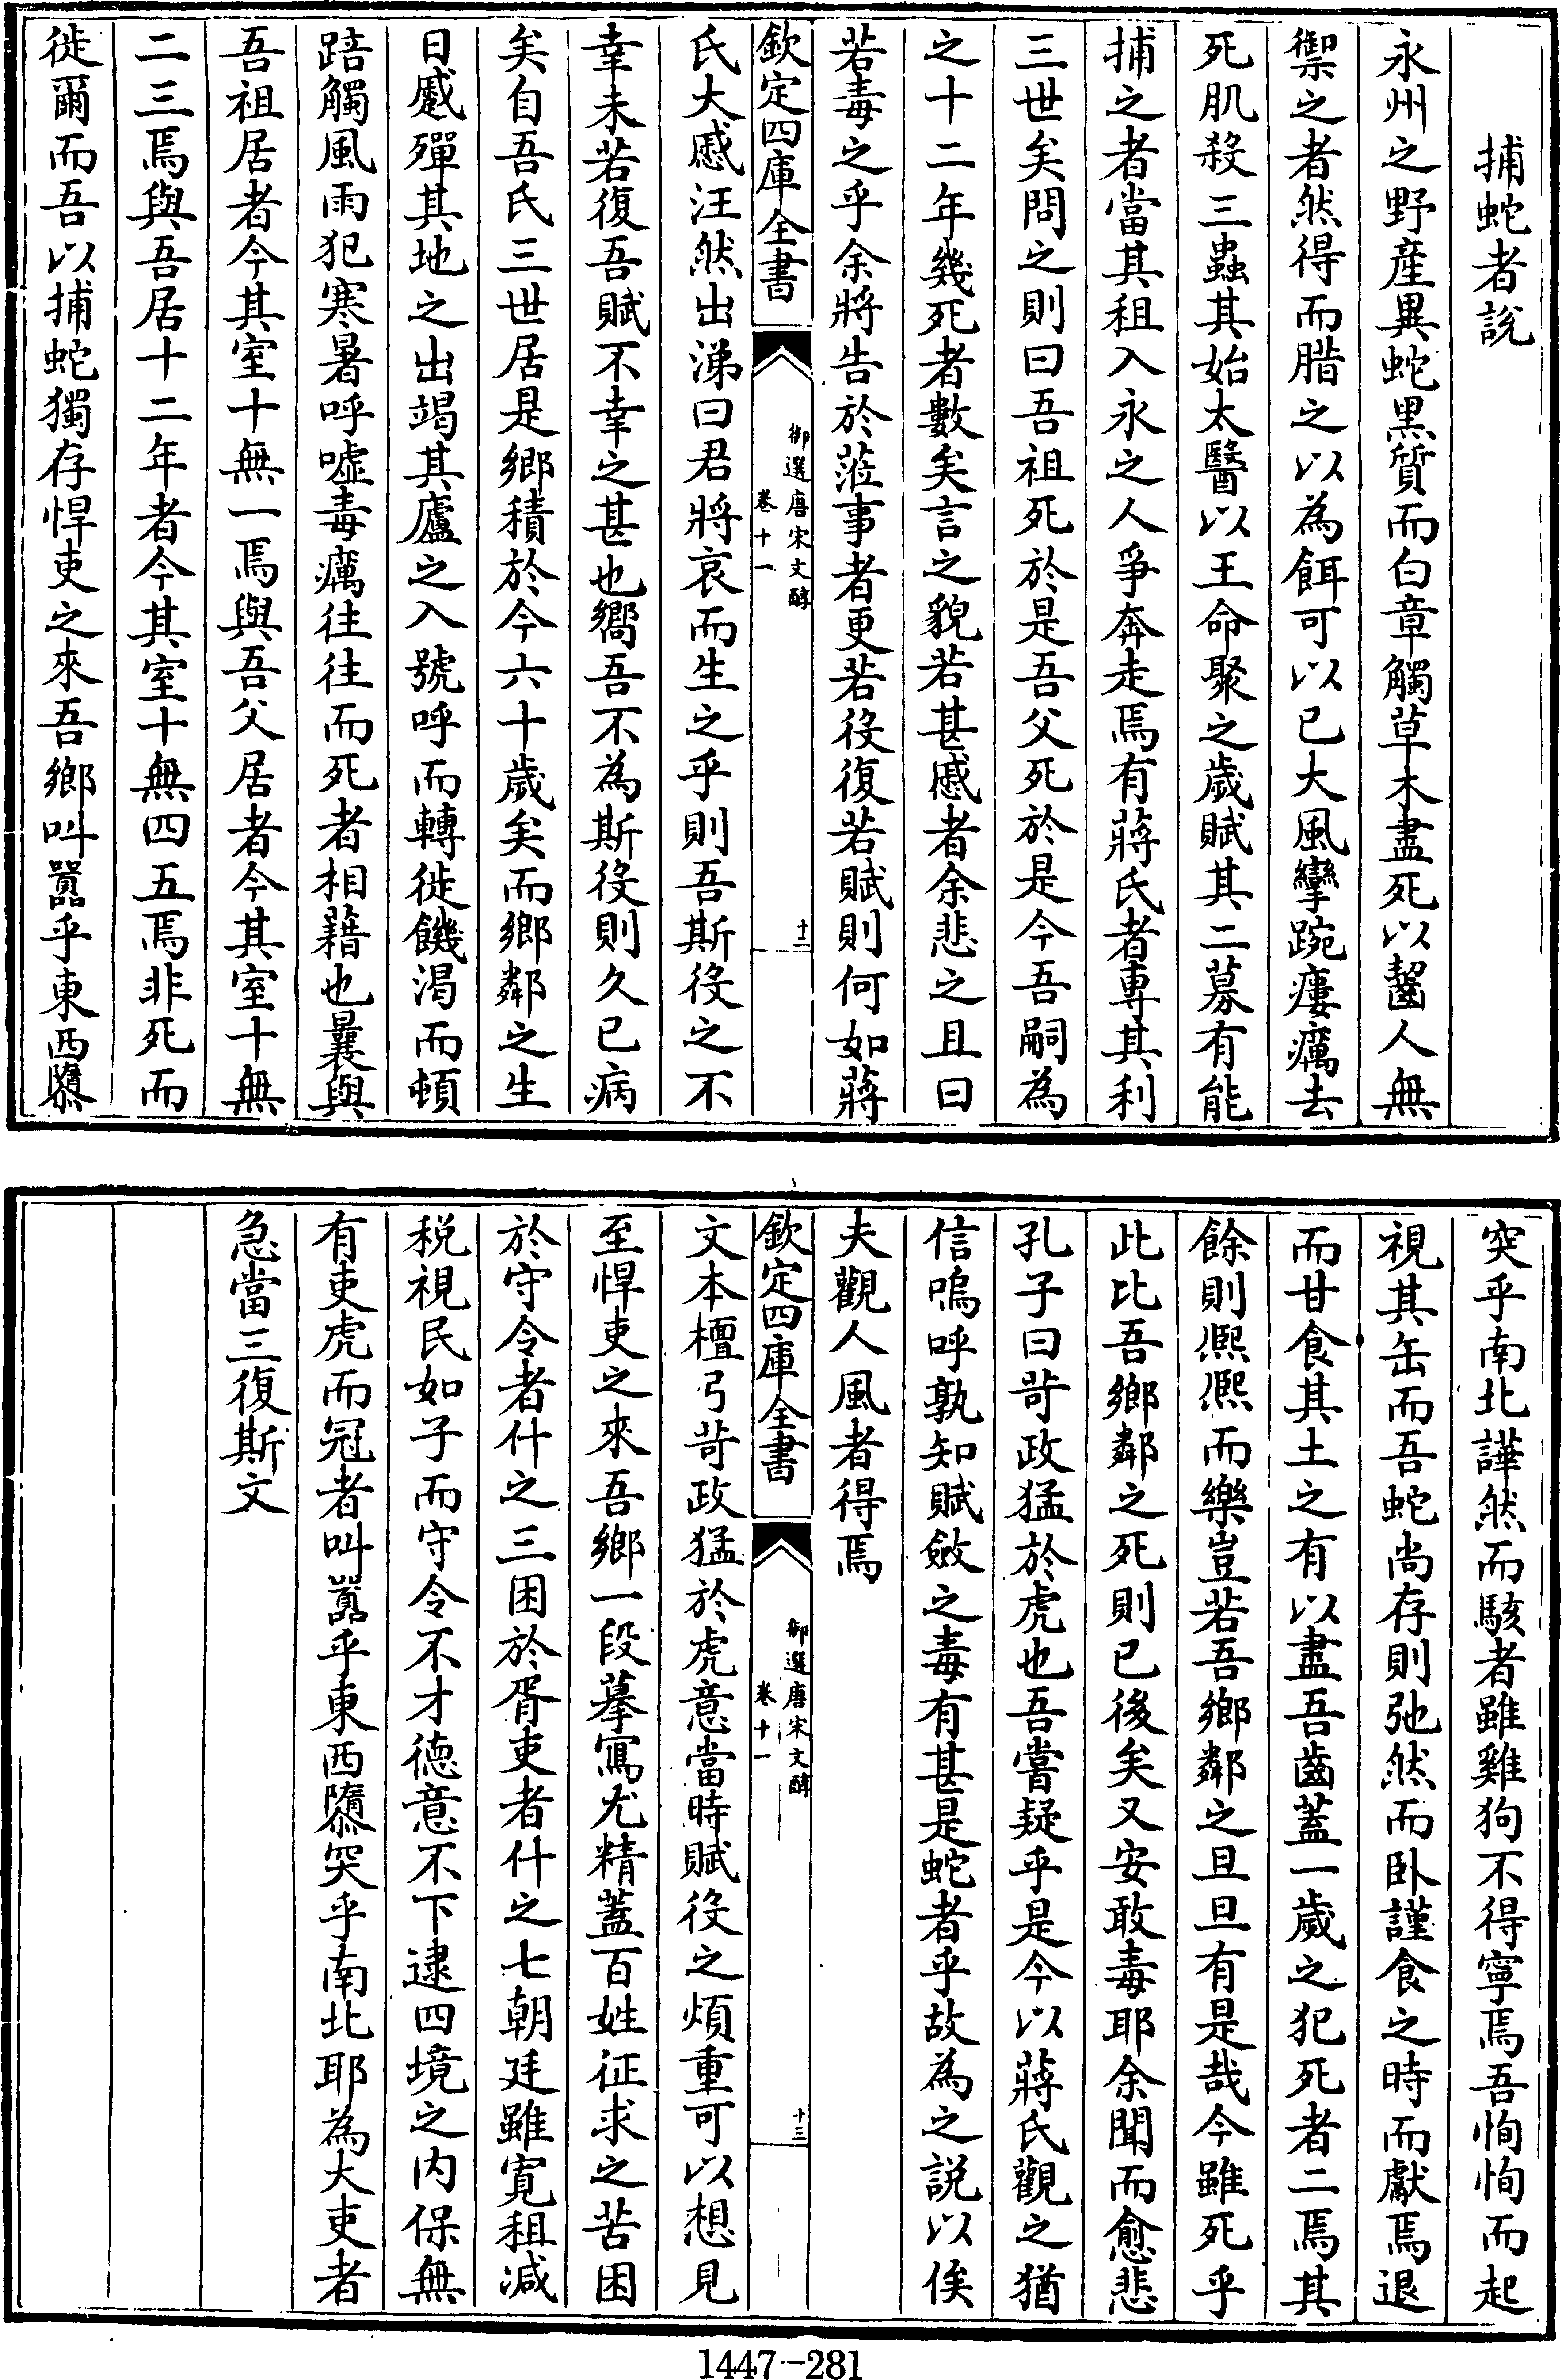 捕蛇者說
永州之野産異蛇黑質而白章觸草木盡死以齧人無
禦之者然得而腊之以為餌可以已大風攣踠瘻癘去
死肌殺三蟲其始太醫以王命聚之歲賦其二募有能
捕之者當其租入永之人爭奔走焉有蔣氏者專其利
三世矣問之則曰吾祖死於是吾父死於是今吾嗣為
之十二年幾死者數矣言之貌若甚慼者余悲之且曰
若毒之乎余將告於蒞事者更若役復若賦則何如蔣
欽定四庫全書
御選唐宋文醇
卷十一
十二
氏大慼汪然出涕曰君將哀而生之乎則吾斯役之不
幸未若復吾賦不幸之甚也嚮吾不為斯役則久已病
矣自吾氏三世居是鄉積於今六十歲矣而鄉鄰之生
日蹙殫其地之出竭其廬之入號呼而轉徙饑渴而頓
踣觸風雨犯寒暑呼噓毒癘往往而死者相藉也曩與
吾祖居者今其室十無一焉與吾父居者今其室十無
二三焉與吾居十二年者今其室十無四五焉非死而
徙爾而吾以捕蛇獨存悍吏之來吾鄉叫囂乎東西隳
突乎南北譁然而駭者雖雞狗不得寧焉吾恂恂而起
視其缶而吾蛇尚存則弛然而卧謹食之時而獻焉退
而甘食其土之有以盡吾齒蓋一歲之犯死者二焉其
餘則熈熈而樂豈若吾鄉鄰之旦旦有是哉今雖死乎
此比吾鄉鄰之死則已後矣又安敢毒耶余聞而愈悲
孔子曰苛政猛於虎也吾嘗疑乎是今以蔣氏觀之猶
信嗚呼孰知賦斂之毒有甚是蛇者乎故為之說以俟
夫觀人風者得焉
欽定四庫全書
御選唐宋文醇
卷十一
十三
文本檀弓苛政猛於虎意當時賦役之煩重可以想見
至悍吏之來吾鄉一段摹寫尤精蓋百姓征求之苦困
於守令者什之三困於胥吏者什之七朝廷雖寬租减
税視民如子而守令不才德意不下逮四境之内保無
有吏虎而冠者叫囂乎東西隳突乎南北耶為大吏者
急當三復斯文
1447-281